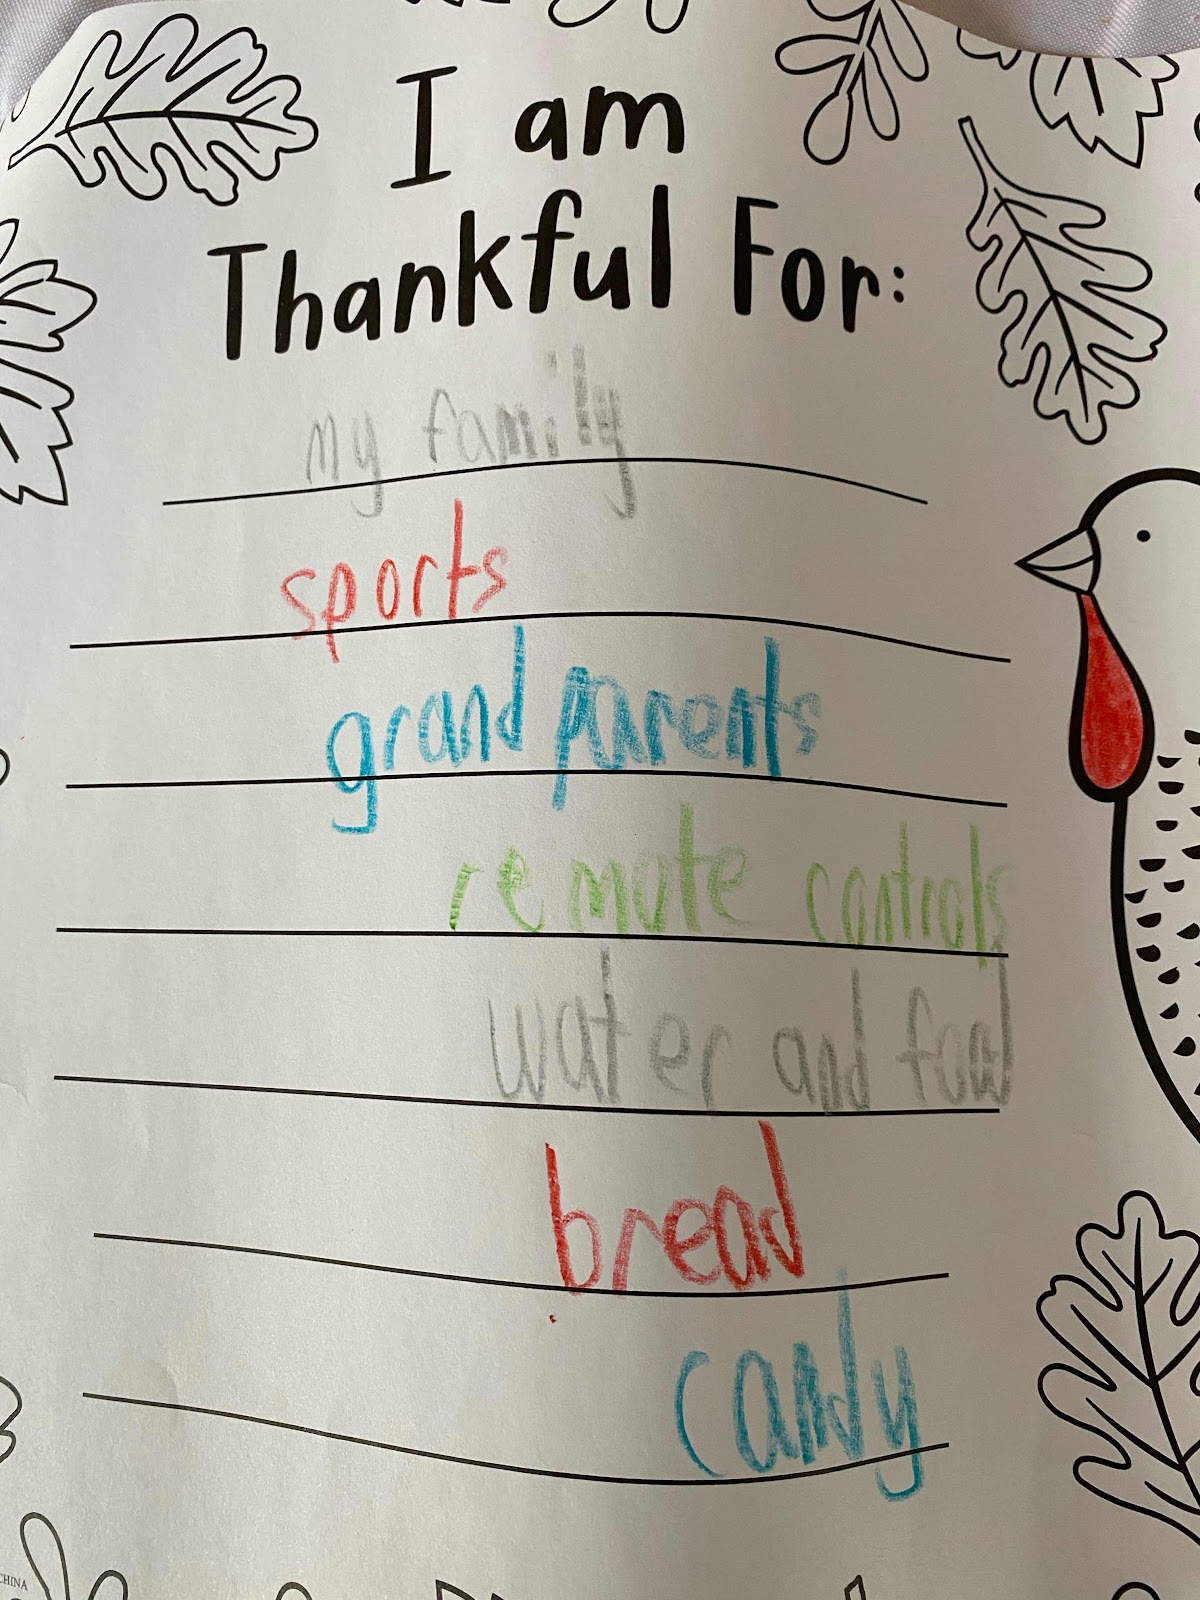 I am
Thankful For:
my family
sports
grand parents
remote controls
water and food
bread
candy
CHINA